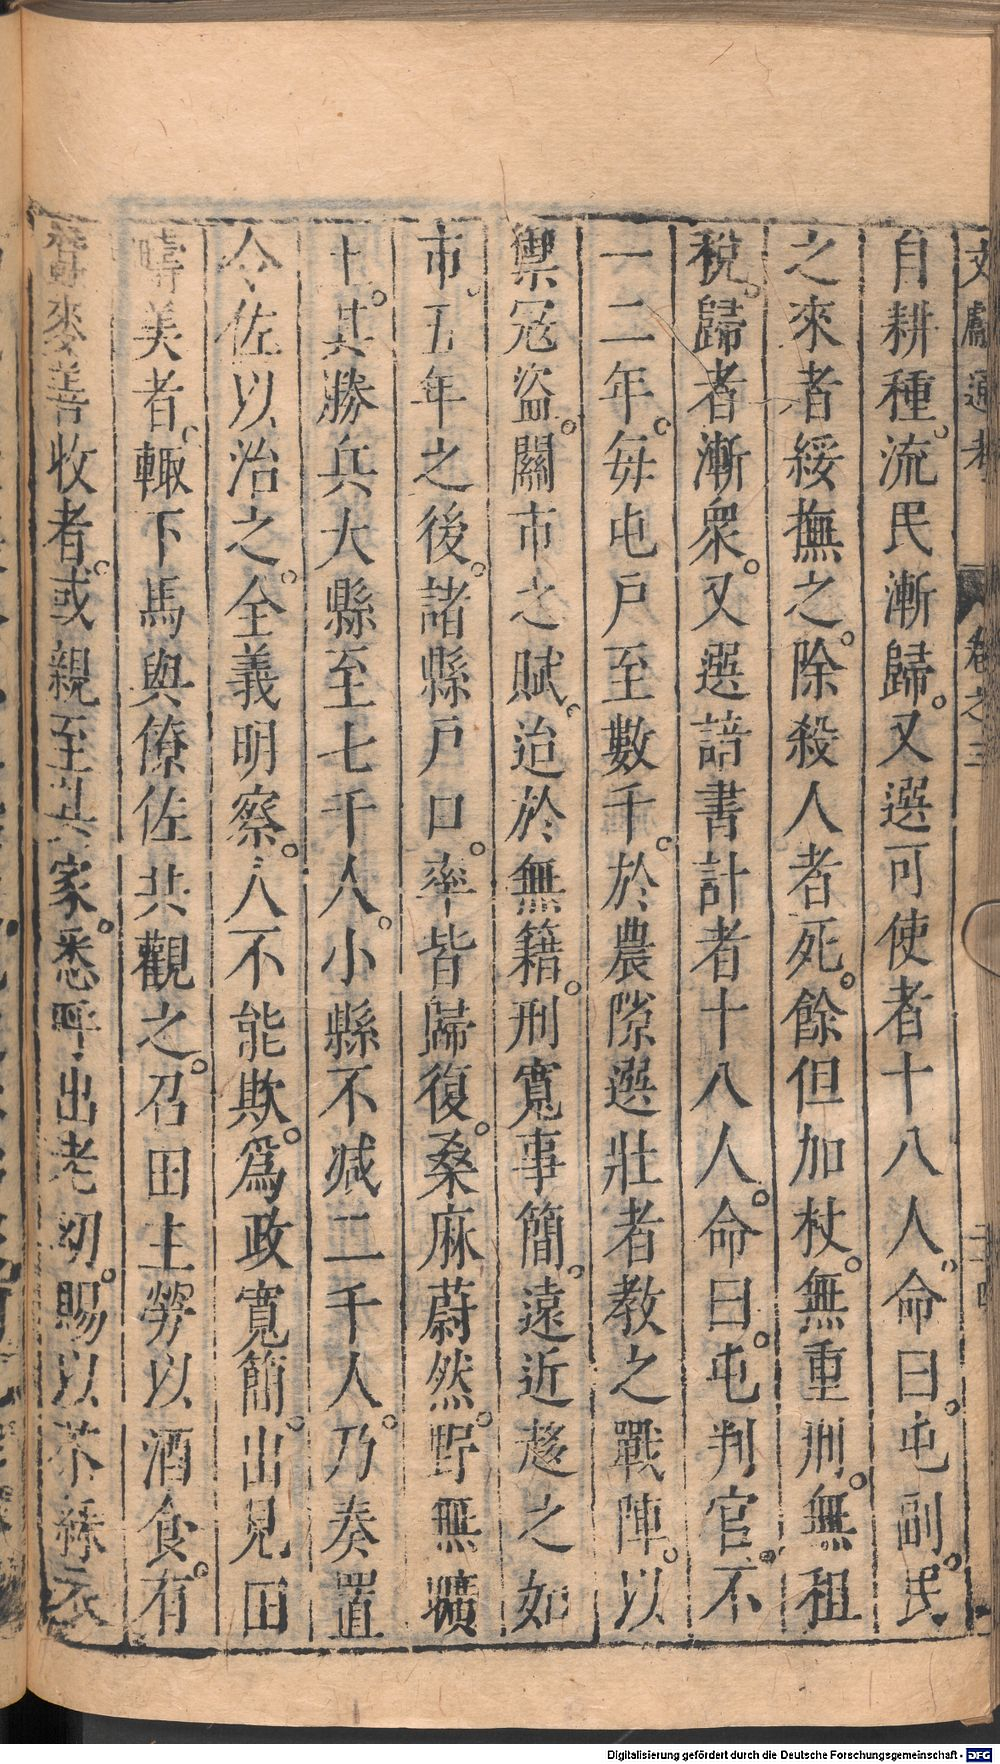 文獻通考 卷之三 二十四
自耕種。流民漸歸。又選可使者十八人。命曰。屯副。民
之來者綏撫之。除殺人者死。餘但加杖。無重刑。無租
稅。歸者漸衆。又選諳書計者十八人。命曰。屯判官。不
一二年。每屯戶至數千。於農隙選壯者教之戰陣。以
禦冦盜。關市之賦。迨於無籍。刑寬事簡。遠近趍之如
市。五年之後。諸縣戶口。率皆歸復。桑麻蔚然。野無曠
土。其勝兵大縣至七千人。小縣不减二千人。乃奏置
令佐以治之。全義明察。人不能欺。爲政寬簡。出見田
疇美者。輙下馬與僚佐共觀之。召田主勞以酒食。有
蠶麥善收者。或親至其家。悉呼出老幼。賜以茶綵衣
Digitalisierung gefördert durch die Deutsche Forschungsgemeinschaft - DFG